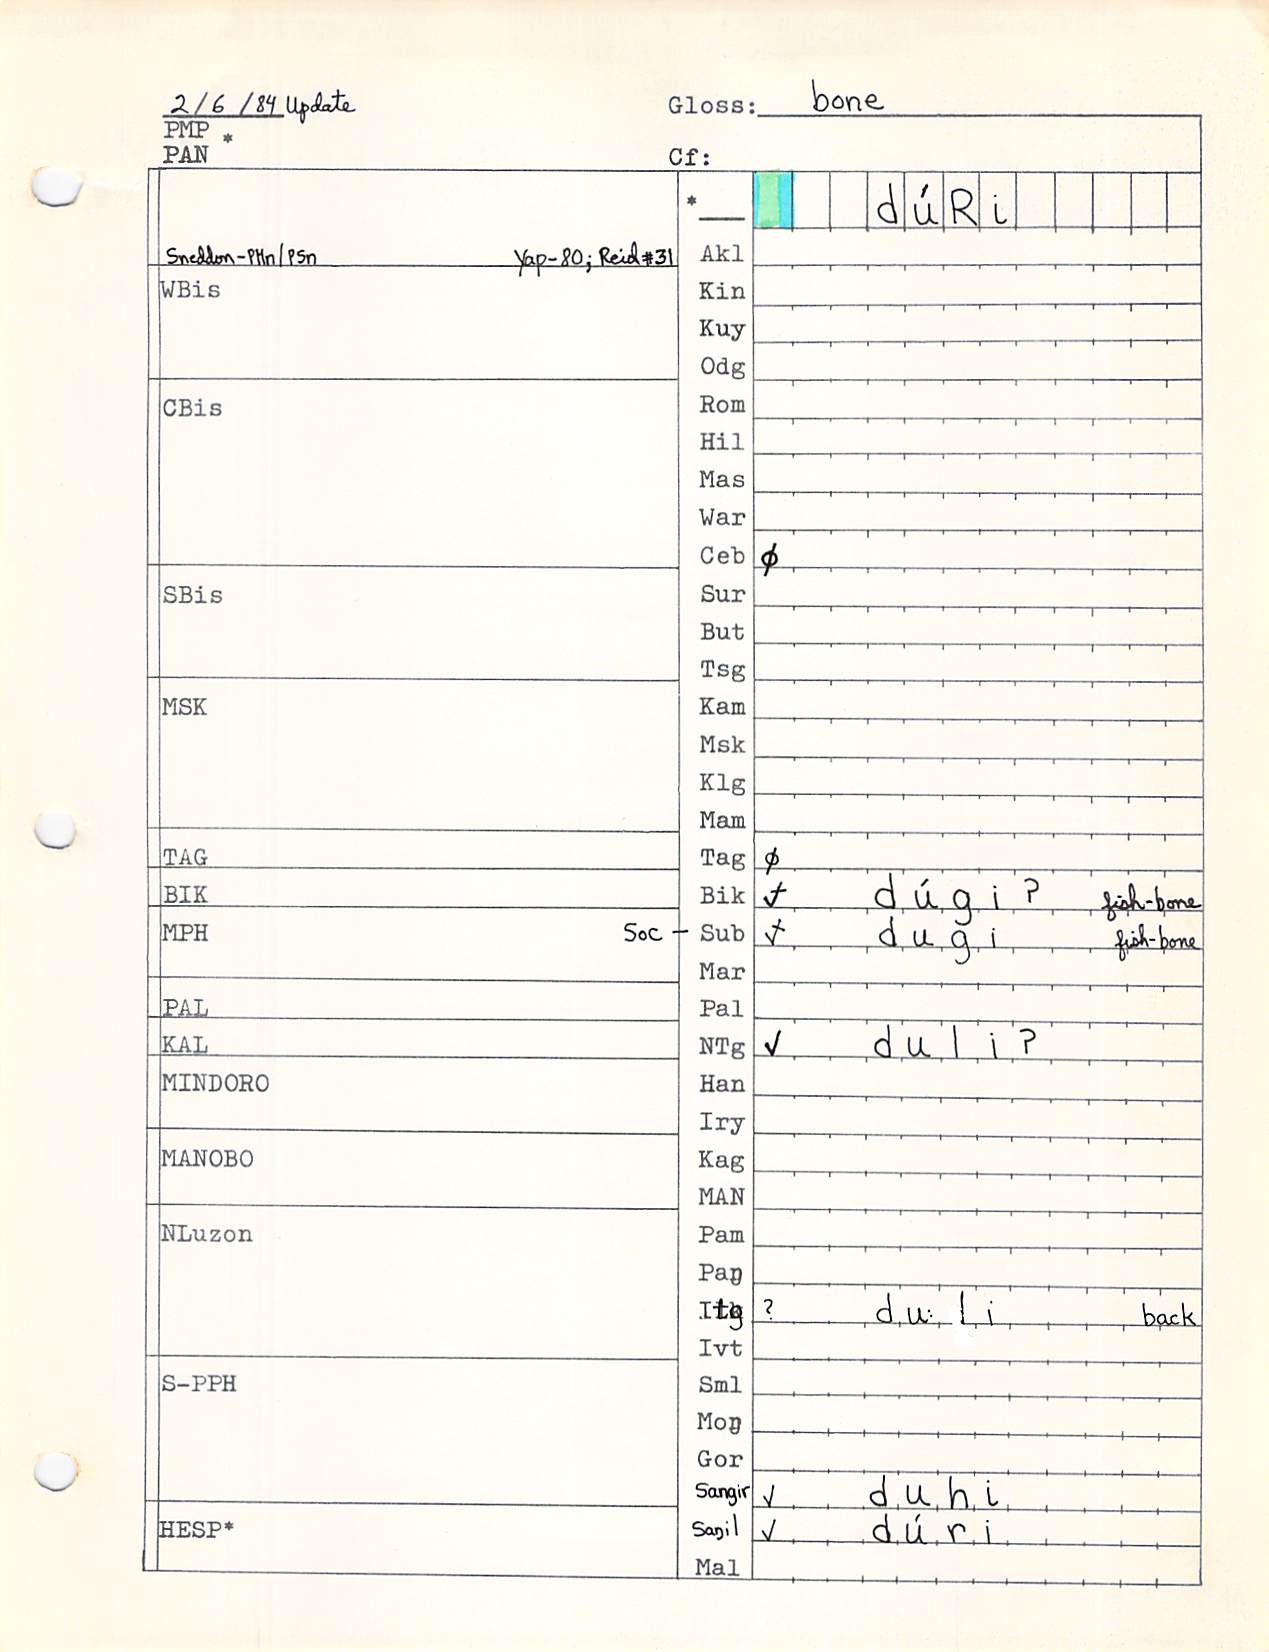 2/6/84 Update Gloss: bone
PMP *
PAN Cf:
* ___ d ú R i
Sneddon-PHn/PSn Yap-80; Reid#31 Akl
WBis Kin
Kuy
Odg
CBis Rom
Hil
Mas
War
Ceb ∅
SBis Sur
But
Tsg
MSK Kam
Msk
Klg
Mam
TAG Tag ∅
BIK Bik d ú g i ? fish-bone
MPH Soc – Sub d u g i fish-bone
Mar
PAL Pal
KAL NTg ✓ d u l i ?
MINDORO Han
Iry
MANOBO Kag
MAN
NLuzon Pam
Paŋ
Itg ? d u: l i back
Ivt
S-PPH Sml
Moŋ
Gor
Sangir ✓ d u h i
HESP* Saŋil ✓ d ú r i
Mal